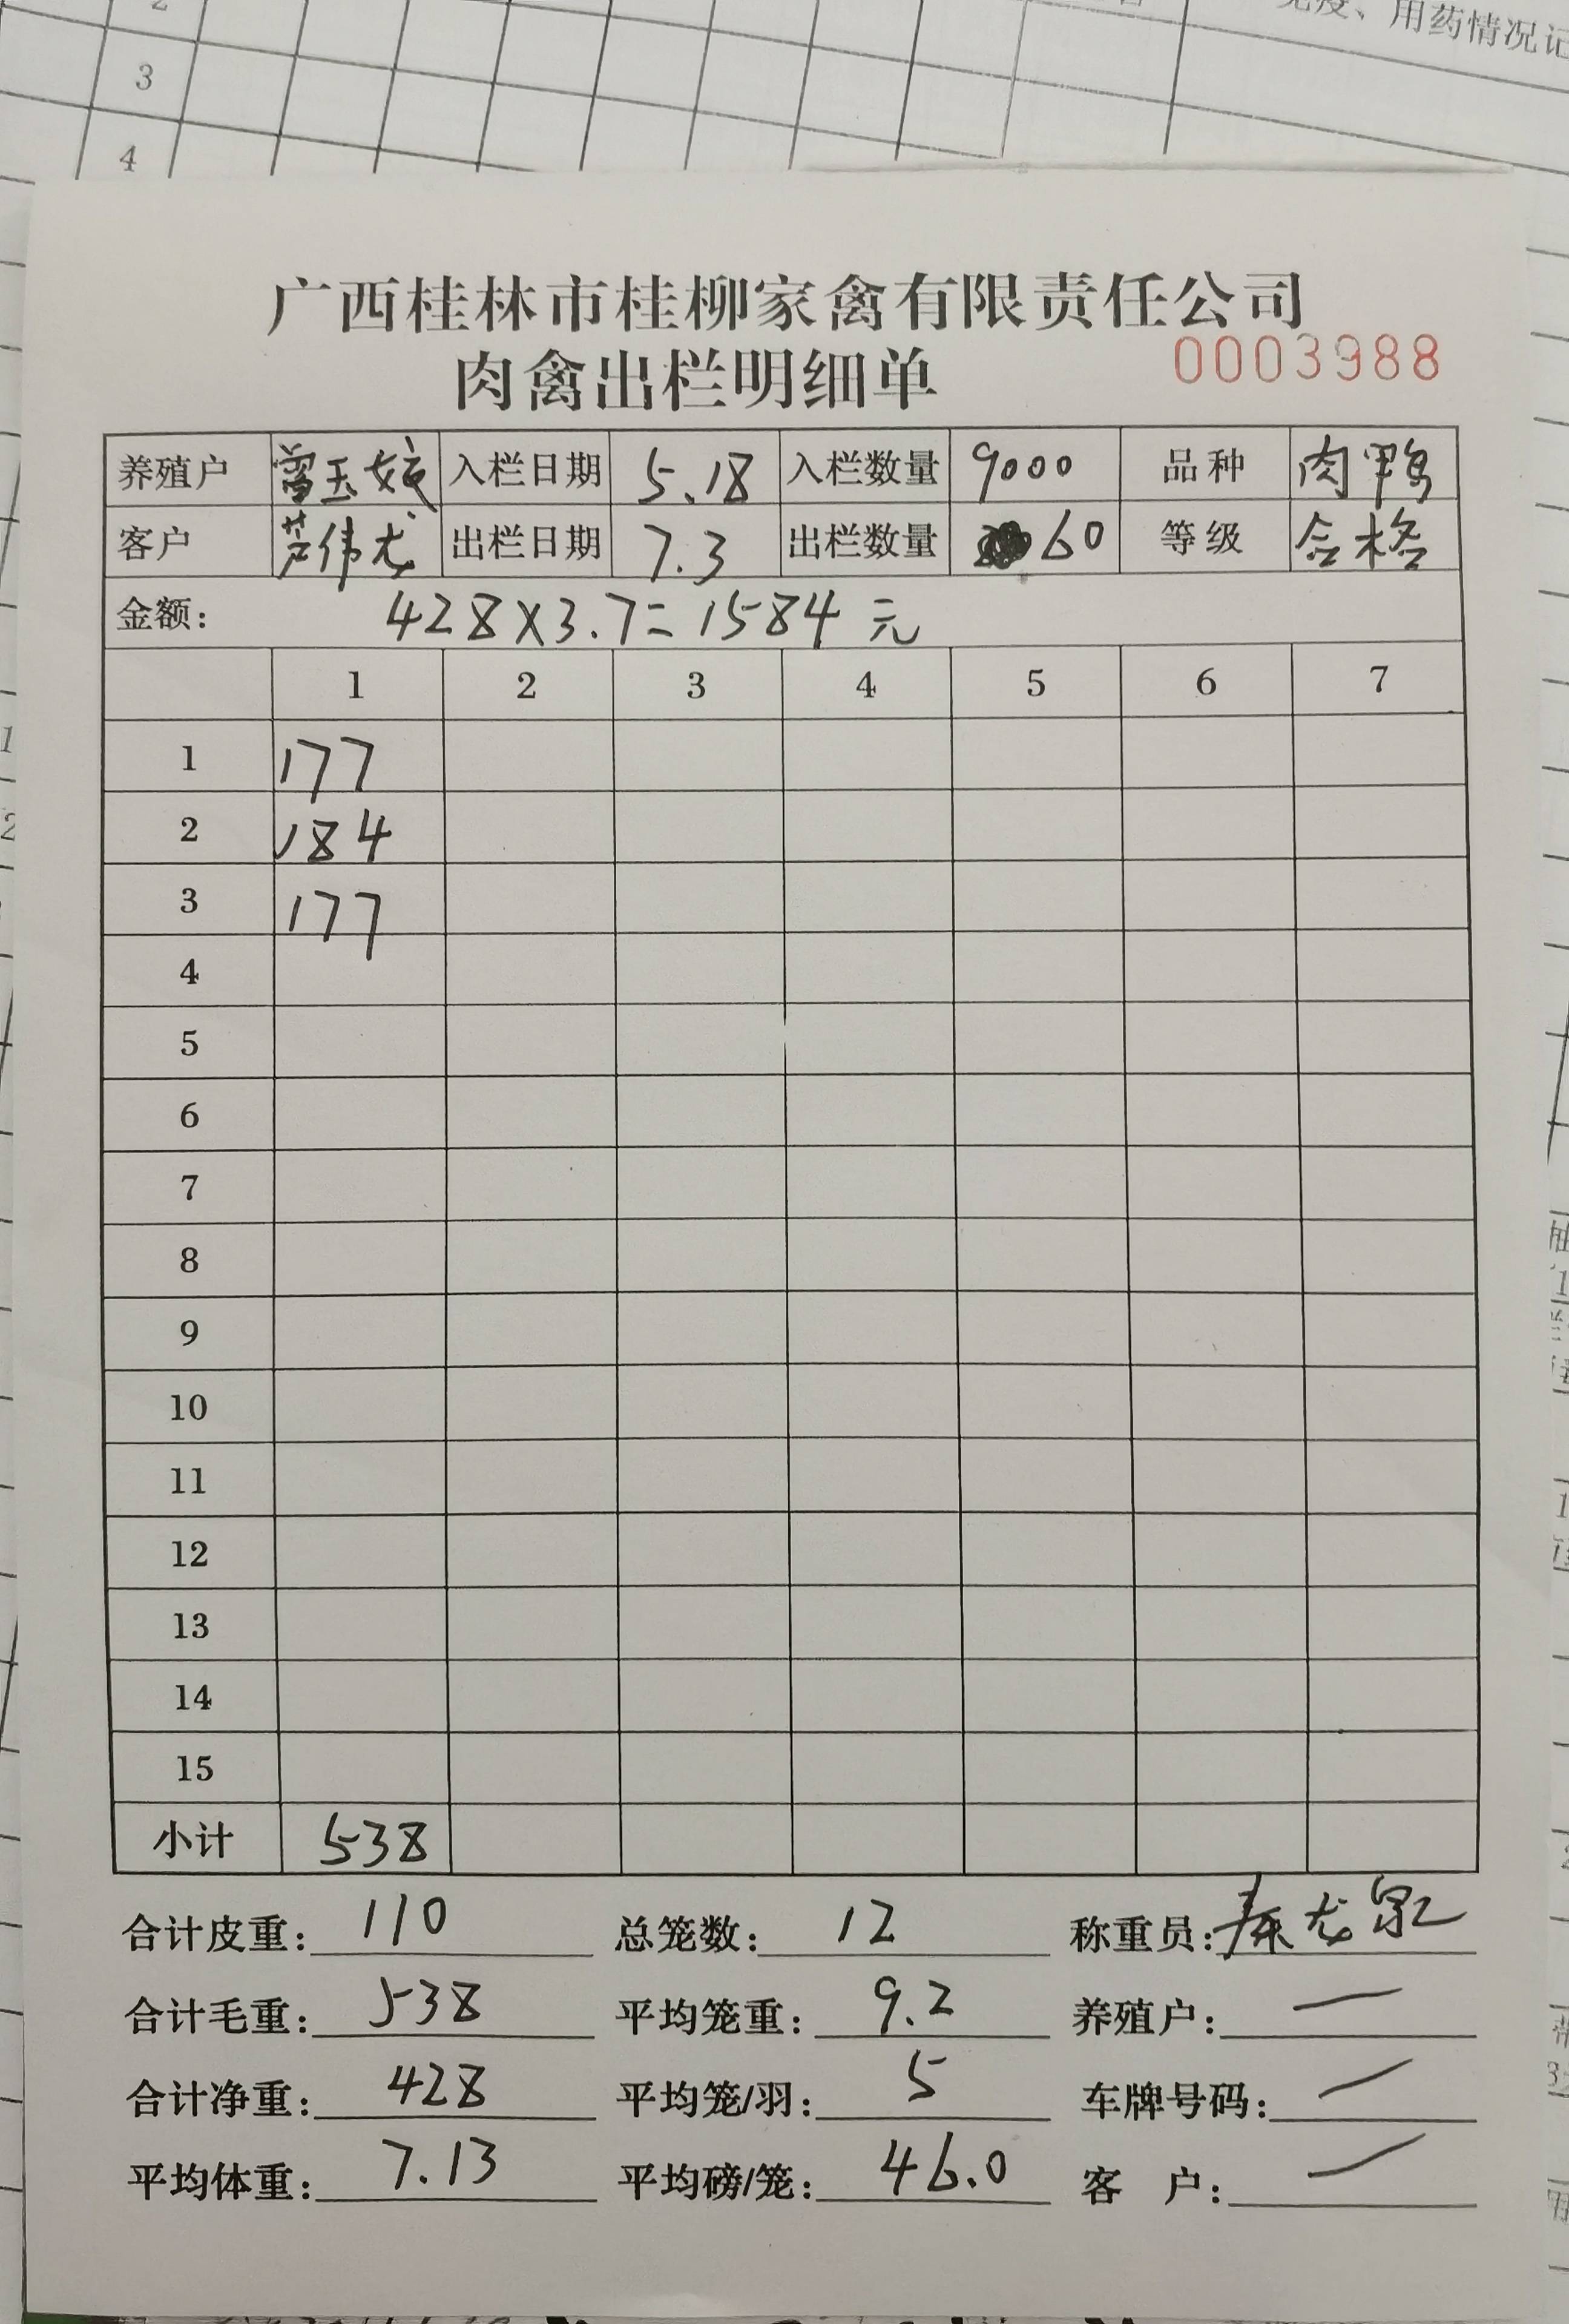 3
4
用药情况记
广西桂林市桂柳家禽有限责任公司
肉禽出栏明细单 0003988
养殖户 入栏日期 5.18 入栏数量 9000 品种 肉鸭
客户 芦伟龙 出栏日期 7.3 出栏数量 60 等级 合格
金额: 428×3.7=1584元
1 2 3 4 5 6 7
1 177
2 184
3 177
4
5
6
7
8
9
10
11
12
13
14
15
小计 538
合计皮重: 110 总笼数: 12 称重员: 秦龙泉
合计毛重: 538 平均笼重: 9.2 养殖户: 一
合计净重: 428 平均笼/羽: 5 车牌号码: 一
平均体重: 7.13 平均磅/笼: 46.0 客 户: 一